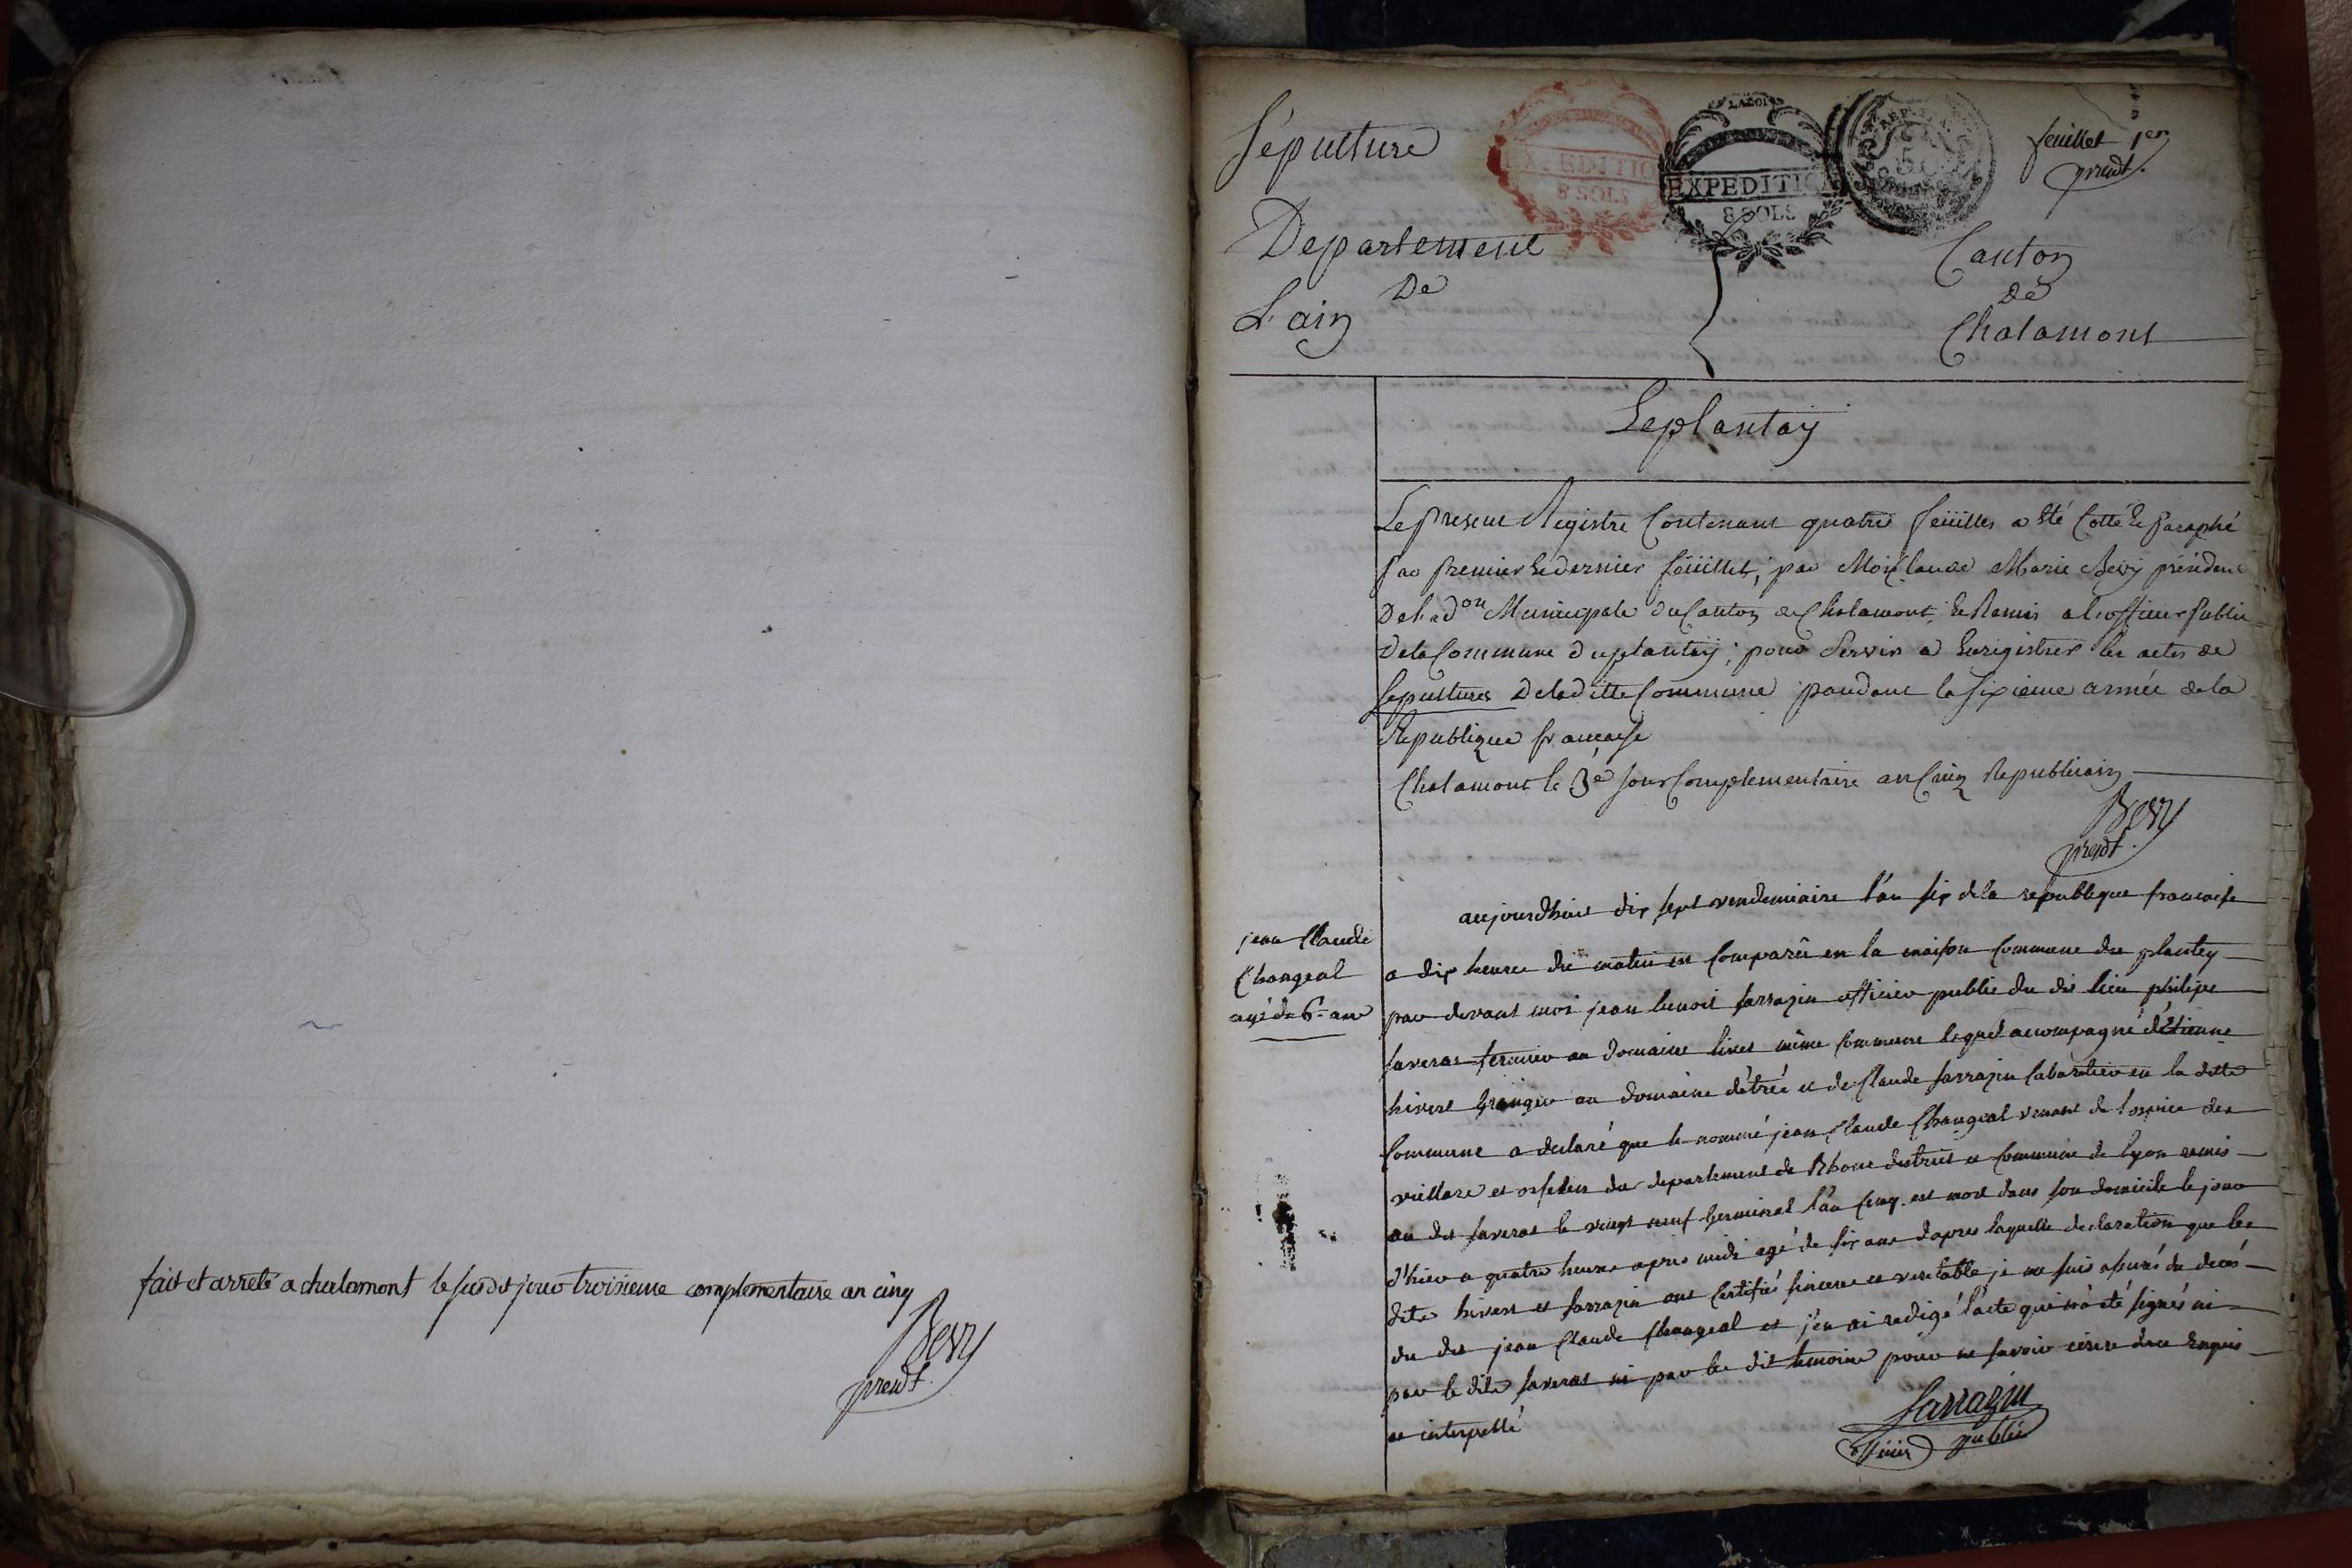 fait et arreté a chalamont le susdt jour troisieme complementaire an cinq
Bevy
presdt.
Sépulture
EXPEDITION
8 SOLS
LA LOI
EXPEDITION
8 SOLS
50
feuillet 1er
presdt.
Departement
De
L'ain
Canton
De
Chalamont
Leplantay
Le present Registre Contenant quatre feüilles a été Cotté & Paraphé
par premier & dernier feüillet, par Moi Claude Marie Bevy président
De l'adon Municipale du Canton de Chalamont, & Remis a l'officier Public
De la Commune du plantay; pour Servir a Enrigistrer les actes de
Sepultures De la ditte Commune pendant la Sixieme année de la
Republique francaise
Chalamont le 3e jour Complementaire an Cinq Republicain
Bevy
presdt.
jean Claude
Changeal
agé de 6 ans
aujourdhuit dix sept vendemiaire l'an six de la republique francaise
a dix heures du matin est Comparû en la maison Commune du plantey
par devant moi jean benoit sarrazin officier public du dit lieu philipe
saveras fermier au domaine livet même Commune lequel accompagné détienne
hivert granger au domaine détrée et de Claude sarrazin Cabaretier en la ditte
Commune a declaré que le nommé jean Claude Changeal venant de l'ospice des
viellare et orfelin du departement de Rhone district et Commune de lyon remis
au dit saveras le vingt neuf germinal l'an cinq est mort dans son domicile le jour
d'hier a quatre heures apres midi agé de six ans dapres laquelle declaration que les
dits hivert et sarrazin ont Certifiés sincere et veritable je me suis assurés du decés
du dit jean Claude Changeal et j'en ai redigé l'acte qui n'a été signés ni
par le dits saveras ni par les dit temoins pour ne savoir ecrire de ce Enquis
et interpellé
Sarrazin
officier public